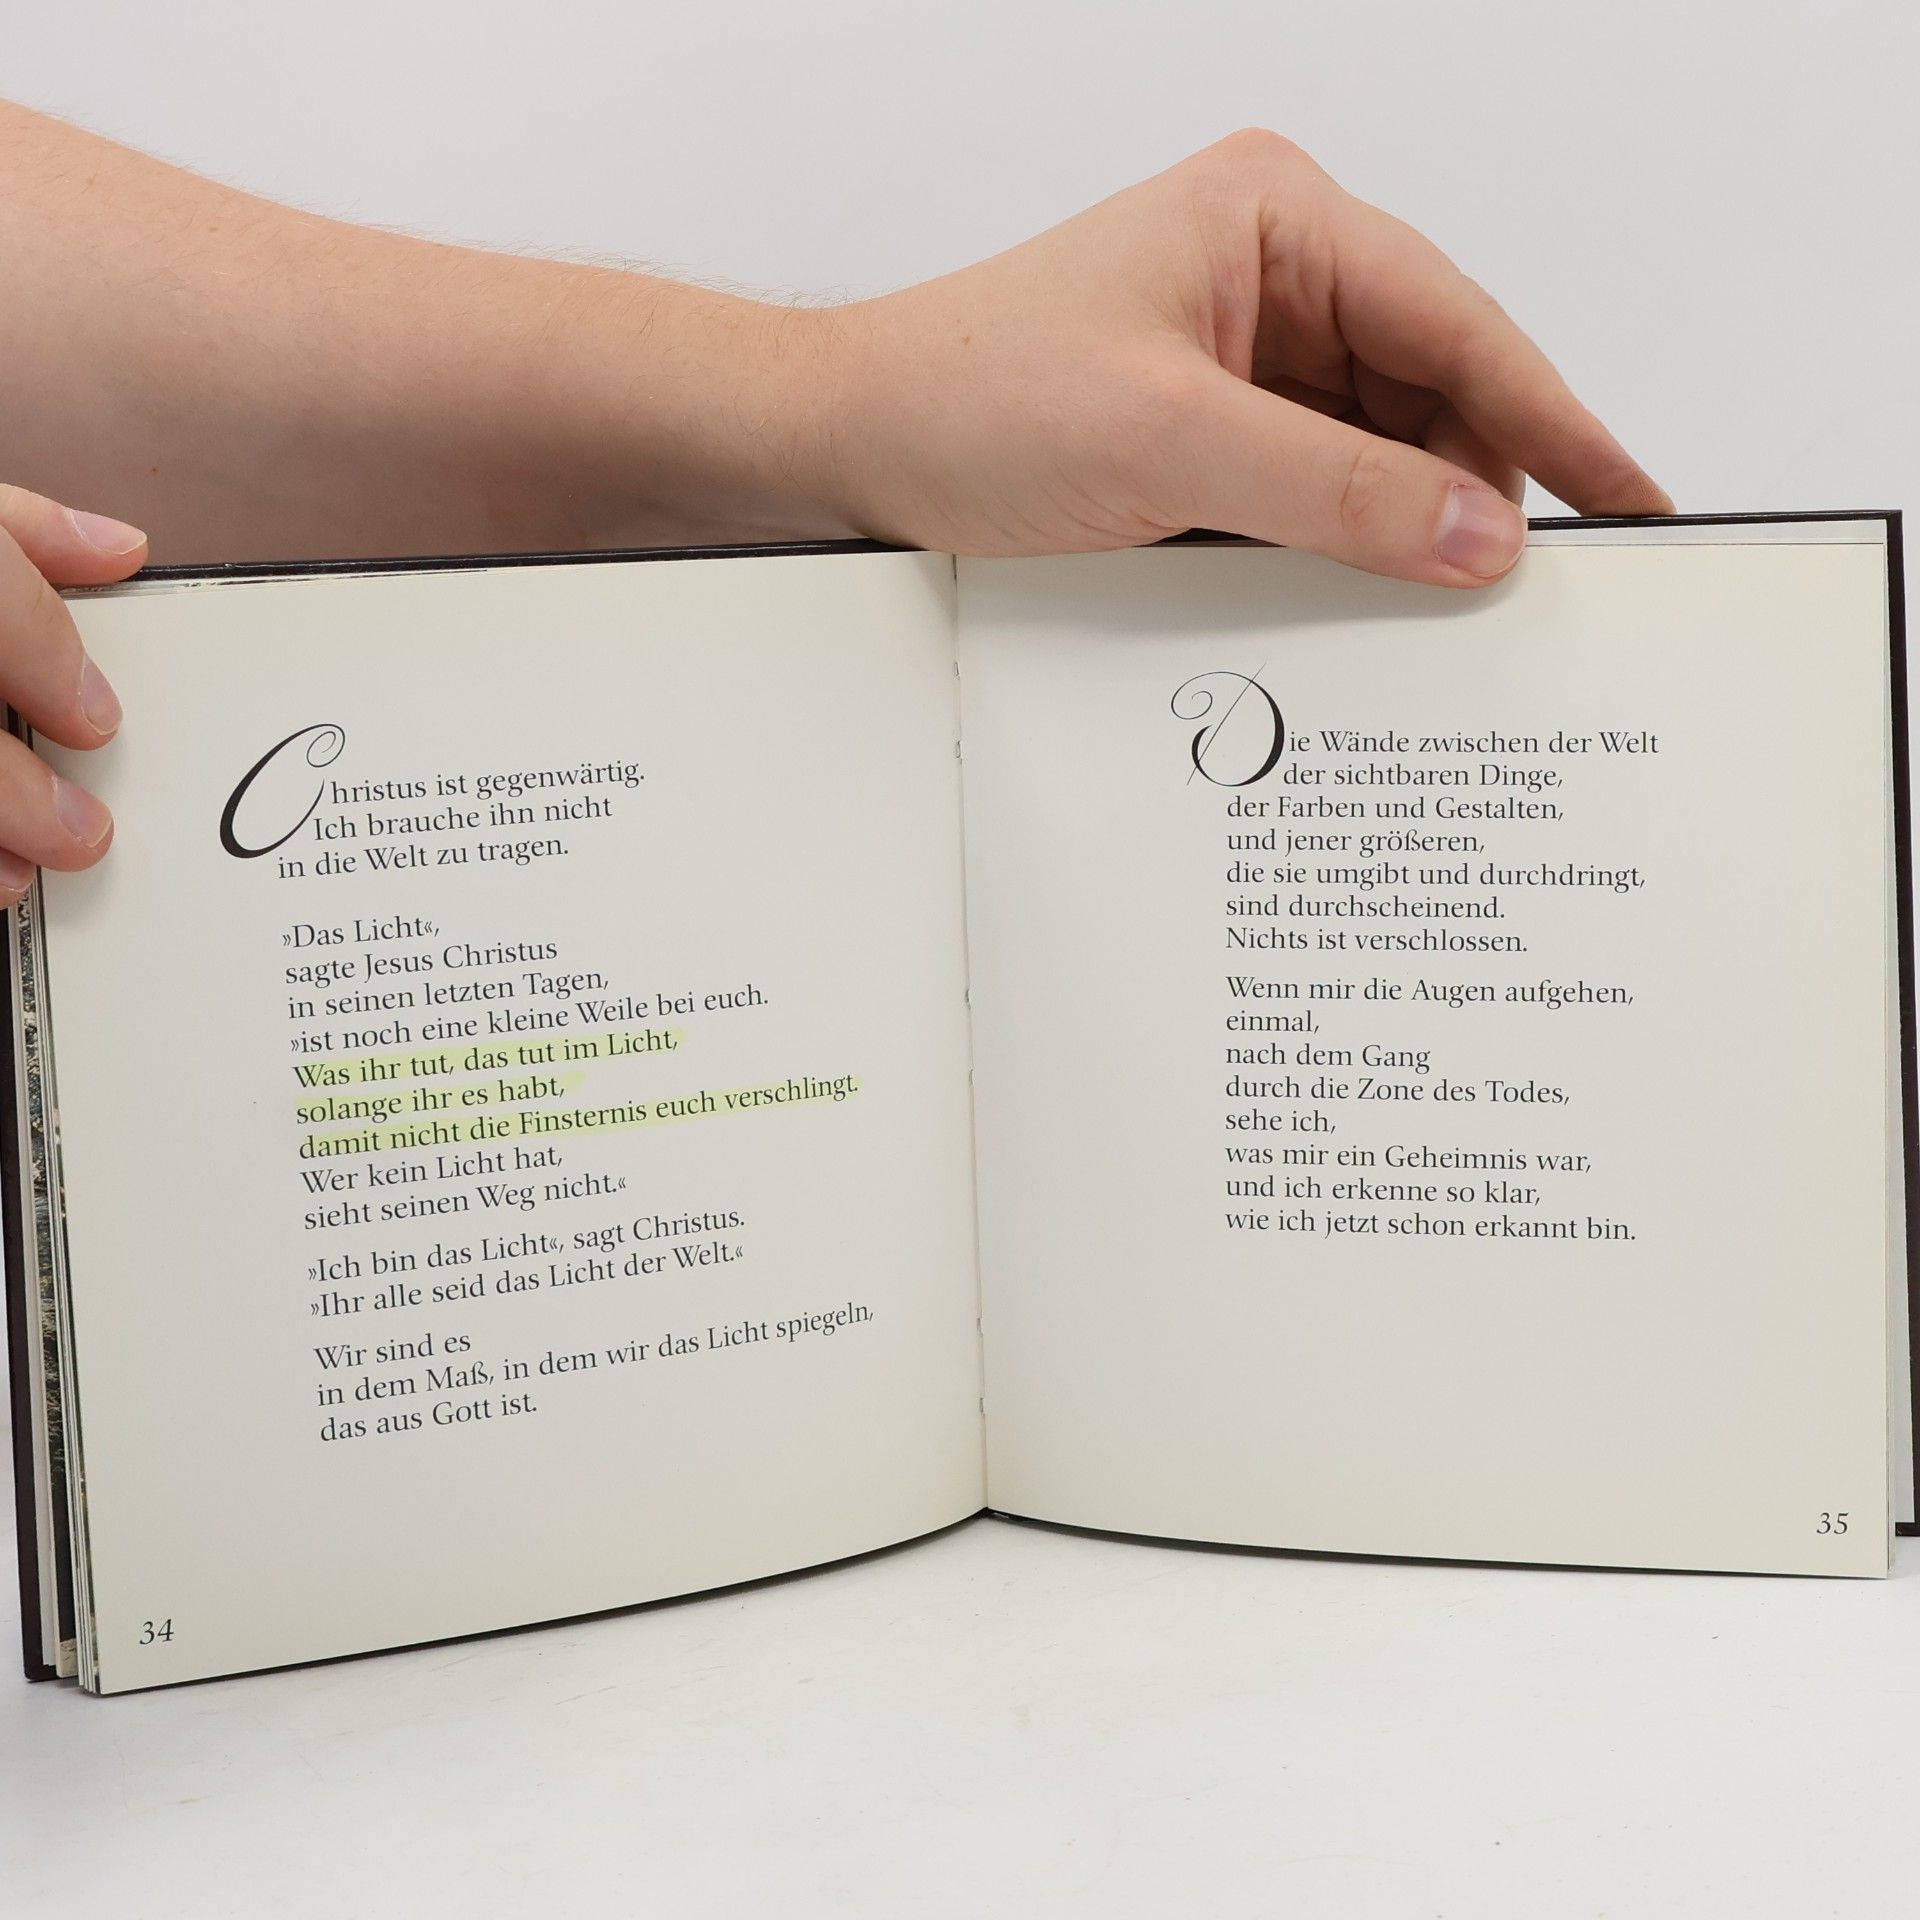 Christus ist gegenwärtig.
Ich brauche ihn nicht
in die Welt zu tragen.
»Das Licht«,
sagte Jesus Christus
in seinen letzten Tagen,
»ist noch eine kleine Weile bei euch.
Was ihr tut, das tut im Licht,
solange ihr es habt,
damit nicht die Finsternis euch verschlingt.
Wer kein Licht hat,
sieht seinen Weg nicht.«
»Ich bin das Licht«, sagt Christus.
»Ihr alle seid das Licht der Welt.«
Wir sind es
in dem Maß, in dem wir das Licht spiegeln,
das aus Gott ist.
34
Die Wände zwischen der Welt
der sichtbaren Dinge,
der Farben und Gestalten,
und jener größeren,
die sie umgibt und durchdringt,
sind durchscheinend.
Nichts ist verschlossen.
Wenn mir die Augen aufgehen,
einmal,
nach dem Gang
durch die Zone des Todes,
sehe ich,
was mir ein Geheimnis war,
und ich erkenne so klar,
wie ich jetzt schon erkannt bin.
35